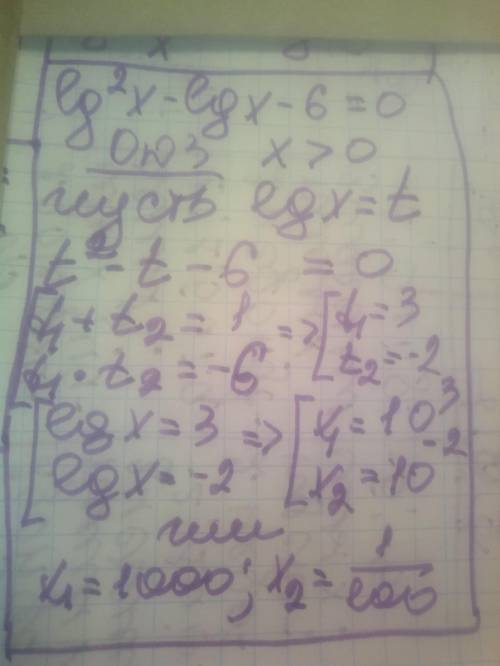 lg²x - lgx - 6 = 0
ОДЗ x > 0
пусть lgx = t
t² - t - 6 = 0
[t₁ + t₂ = 1 => [t₁ = 3
[t₁ · t₂ = -6 [t₂ = -2
[lgx = 3 => [x₁ = 10³
[lgx = -2 [x₂ = 10⁻²
или
x₁ = 1000; x₂ = 1/100